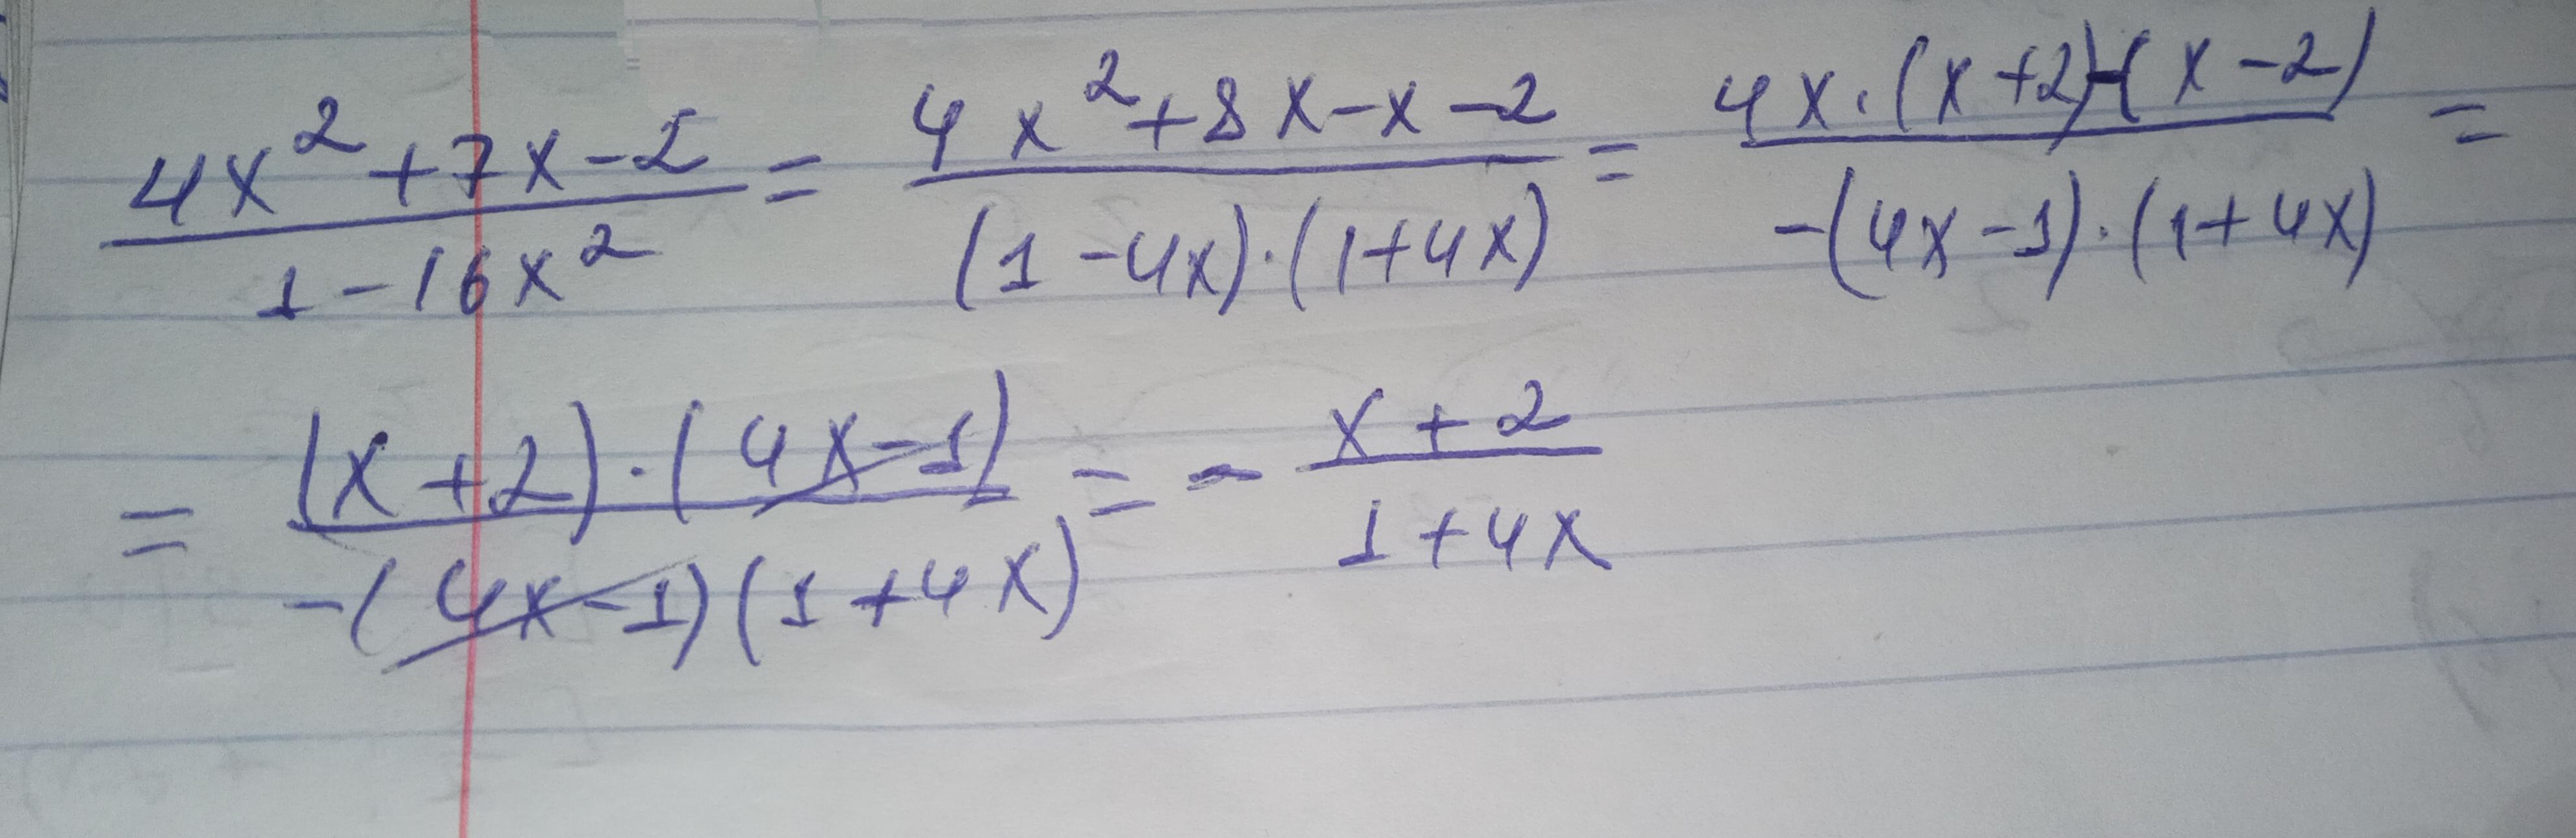 (4x²+7x-2)/(1-16x²) = (4x²+8x-x-2)/((1-4x)·(1+4x)) = (4x·(x+2)-(x-2))/(-(4x-1)·(1+4x)) =
= ((x+2)·(4x-1))/(-(4x-1)(1+4x)) = - (x+2)/(1+4x)